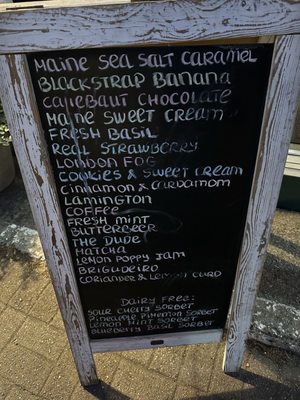 Maine Sea Salt Caramel
Blackstrap Banana
Callebaut Chocolate
Maine Sweet Cream
Fresh Basil
Real Strawberry
London Fog
Cookies & Sweet Cream
Cinnamon & Cardamom
Lamington
Coffee
Fresh Mint
Butterbeer
The Dude
Matcha
Lemon Poppy Jam
Brigadeiro
Coriander & Lemon Curd
Dairy Free:
Sour Cherry Sorbet
Pineapple Piment Sorbet
Lemon Mint Sorbet
Blueberry Basil Sorbet